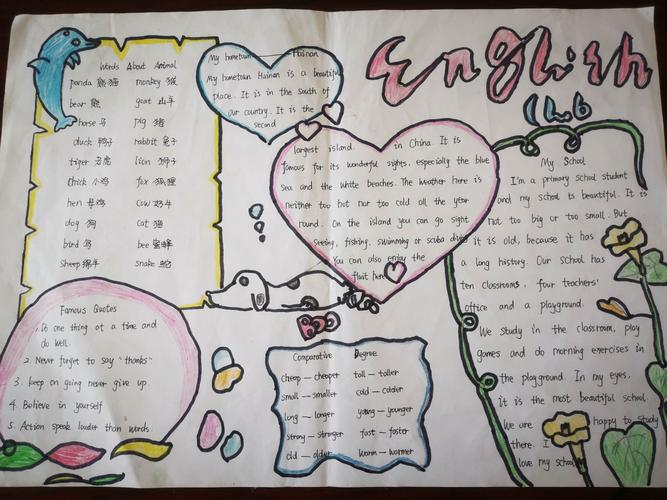 English
Club
Words About Animal
panda 熊猫 monkey 猴
bear 熊 goat 山羊
horse 马 pig 猪
duck 鸭子 rabbit 兔子
tiger 老虎 lion 狮子
chick 小鸡 fox 狐狸
hen 母鸡 cow 奶牛
dog 狗 cat 猫
bird 鸟 bee 蜜蜂
sheep 绵羊 snake 蛇
My hometown — Hainan
My hometown Hainan is a beautiful
place. It is in the south of
our country. It is the
second
largest island in China It is
famous for its wonderful sights, especially the blue
sea and the white beaches. The weather here is
neither too hot nor too cold all the year
round. On the island you can go sight
seeing, fishing, swimming or scuba diving
You can also enjoy the
fluit here
My School
I'm a primary school student
and my school is beautiful. It is
not too big or too small. But
it is old, because it has
a long history. Our School has
ten classrooms, four teachers'
office and a playground.
We study in the classroom, play
games and do morning exercises in
the playground. In my eyes,
it is the most beautiful school.
We are happy to study
there. I
love my school
Famous Quotes
1. Do one thing at a time and
do well.
2. Never forget to say "thanks"
3. keep on going never give up
4. Believe in yourself
5. Action speak louder than words.
Comparative Degree
cheap — cheaper tall — taller
small — smaller cold — colder
long — longer young — younger
strong — stronger fast — faster
old — older warm — warmer